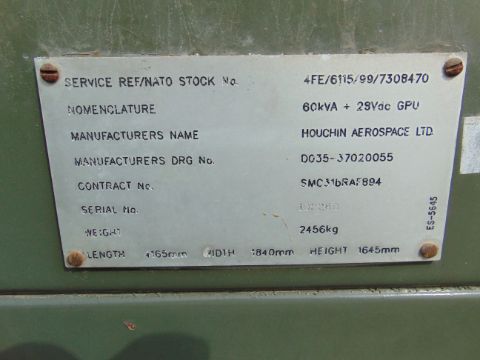 SERVICE REF/NATO STOCK No. 4FE/6115/99/7308470
NOMENCLATURE 60kVA + 28Vdc GPU
MANUFACTURERS NAME HOUCHIN AEROSPACE LTD.
MANUFACTURERS DRG No. D035-37020055
CONTRACT No. SMC31bRAF894
SERIAL No.
WEIGHT 2456kg
LENGTH WIDTH 1840mm HEIGHT 1645mm
ES-5645